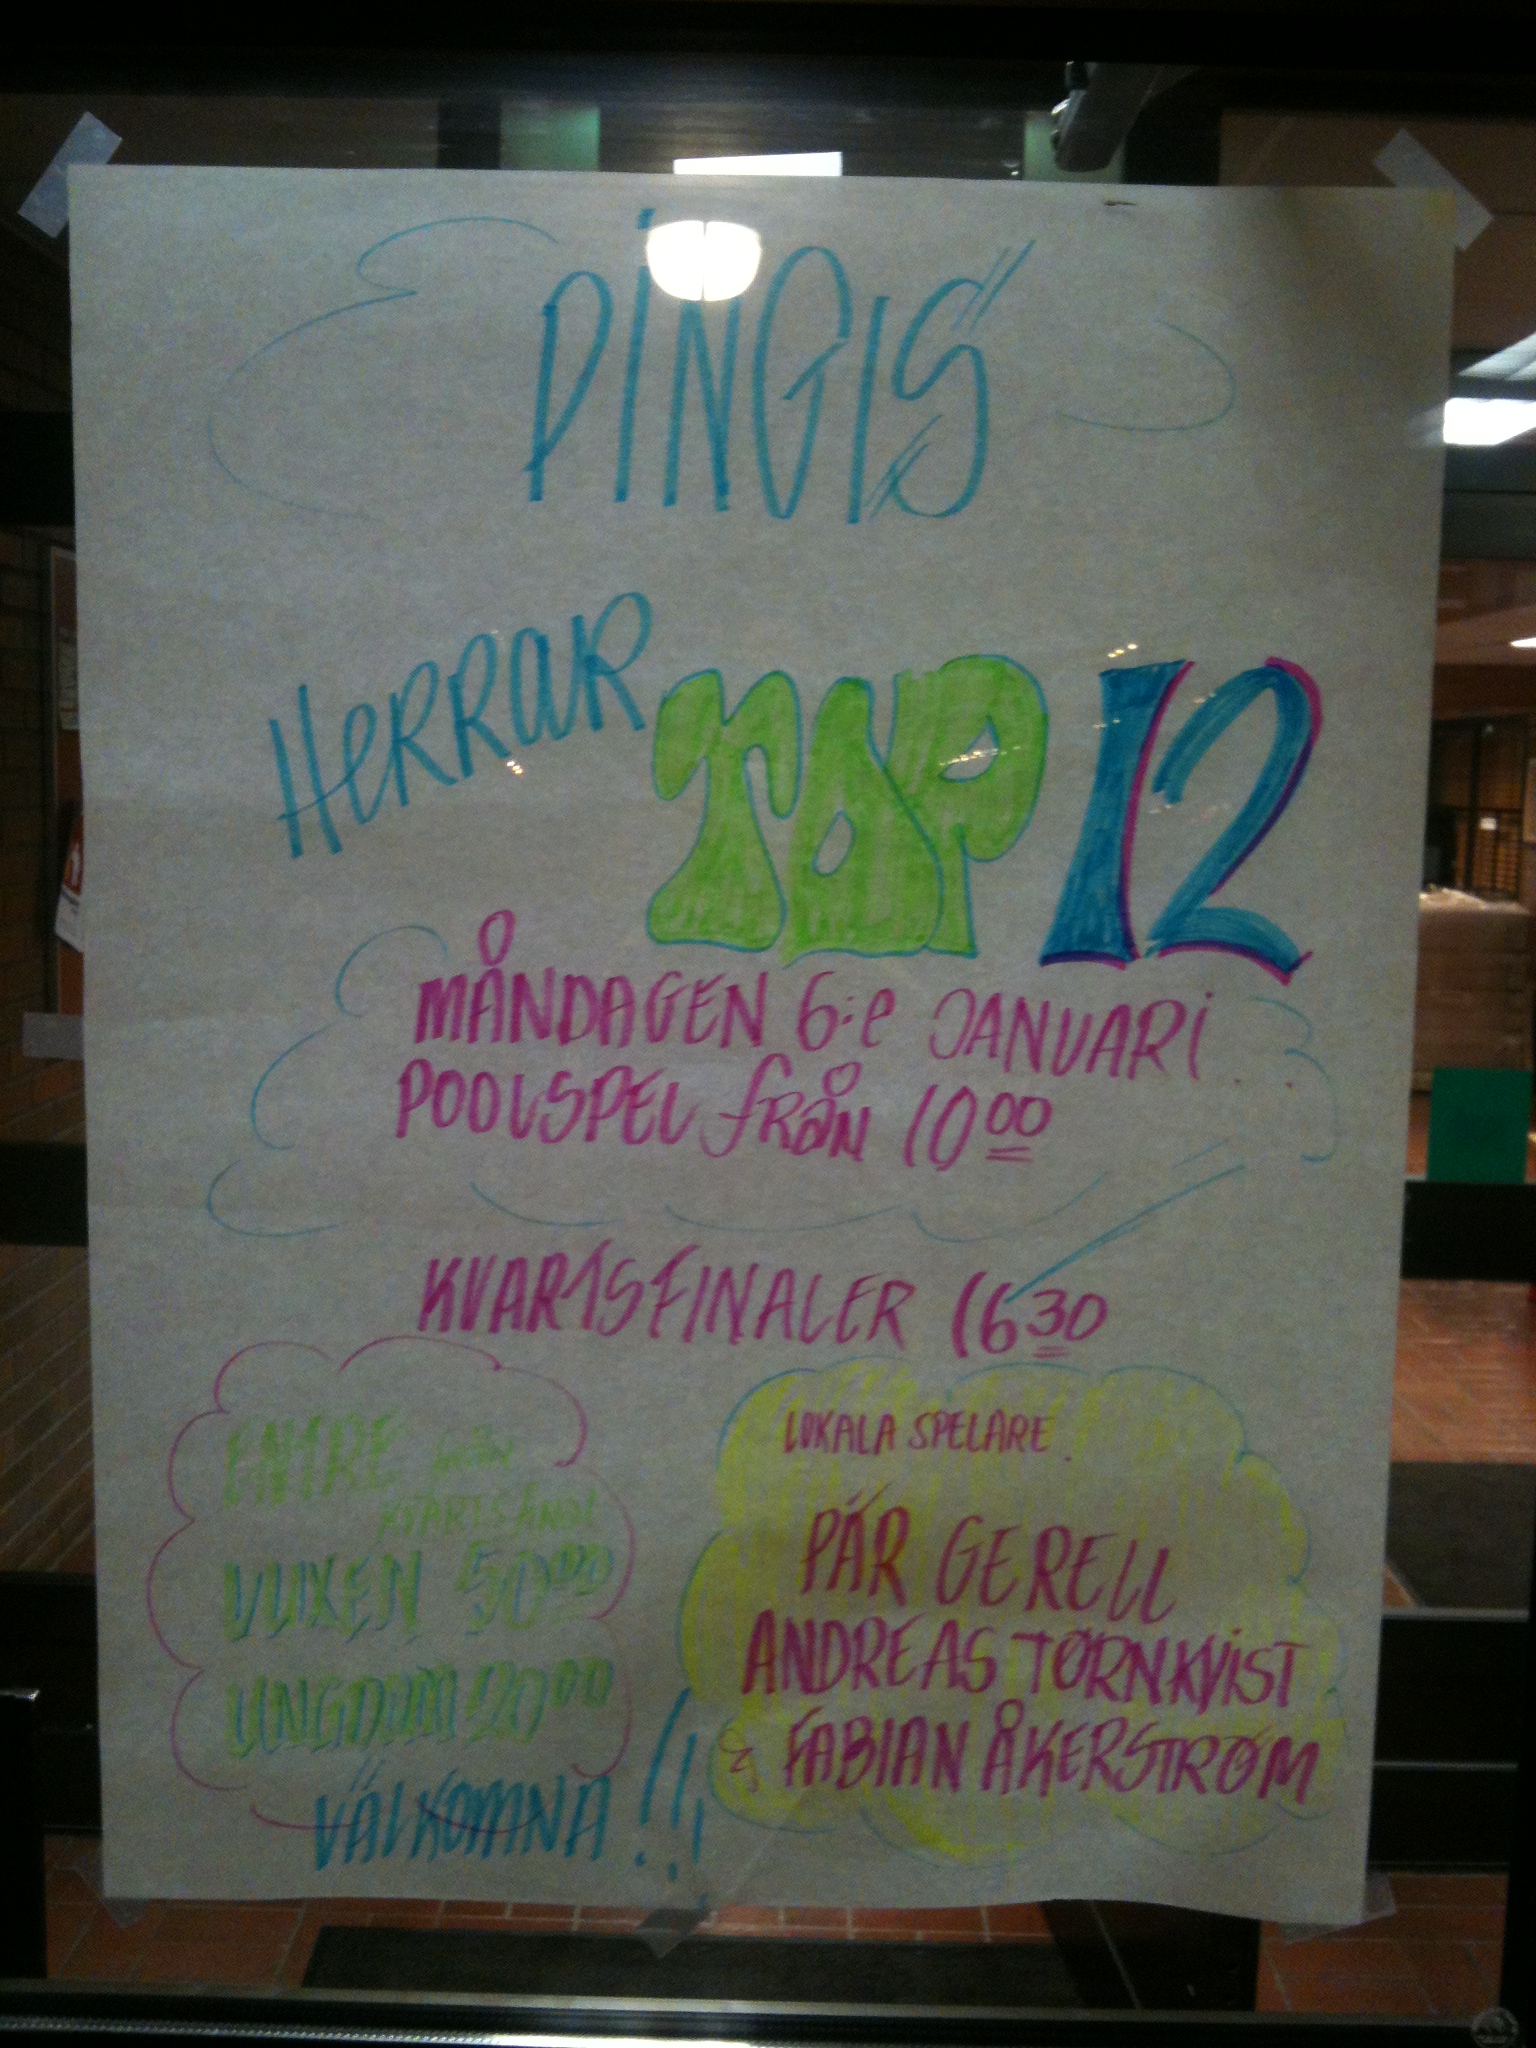 PINGIS
HERRAR TOP 12
MÅNDAGEN 6:e JANUARI
POOLSPEL från 10 00
KVARTSFINALER 16 30
ENTRE från
VUXEN 50 00
UNGDOM 20 00
VÄLKOMNA!!!
LOKALA SPELARE.
PÄR GERELL
ANDREAS TØRNKVIST
& FABIAN ÅKERSTRØM